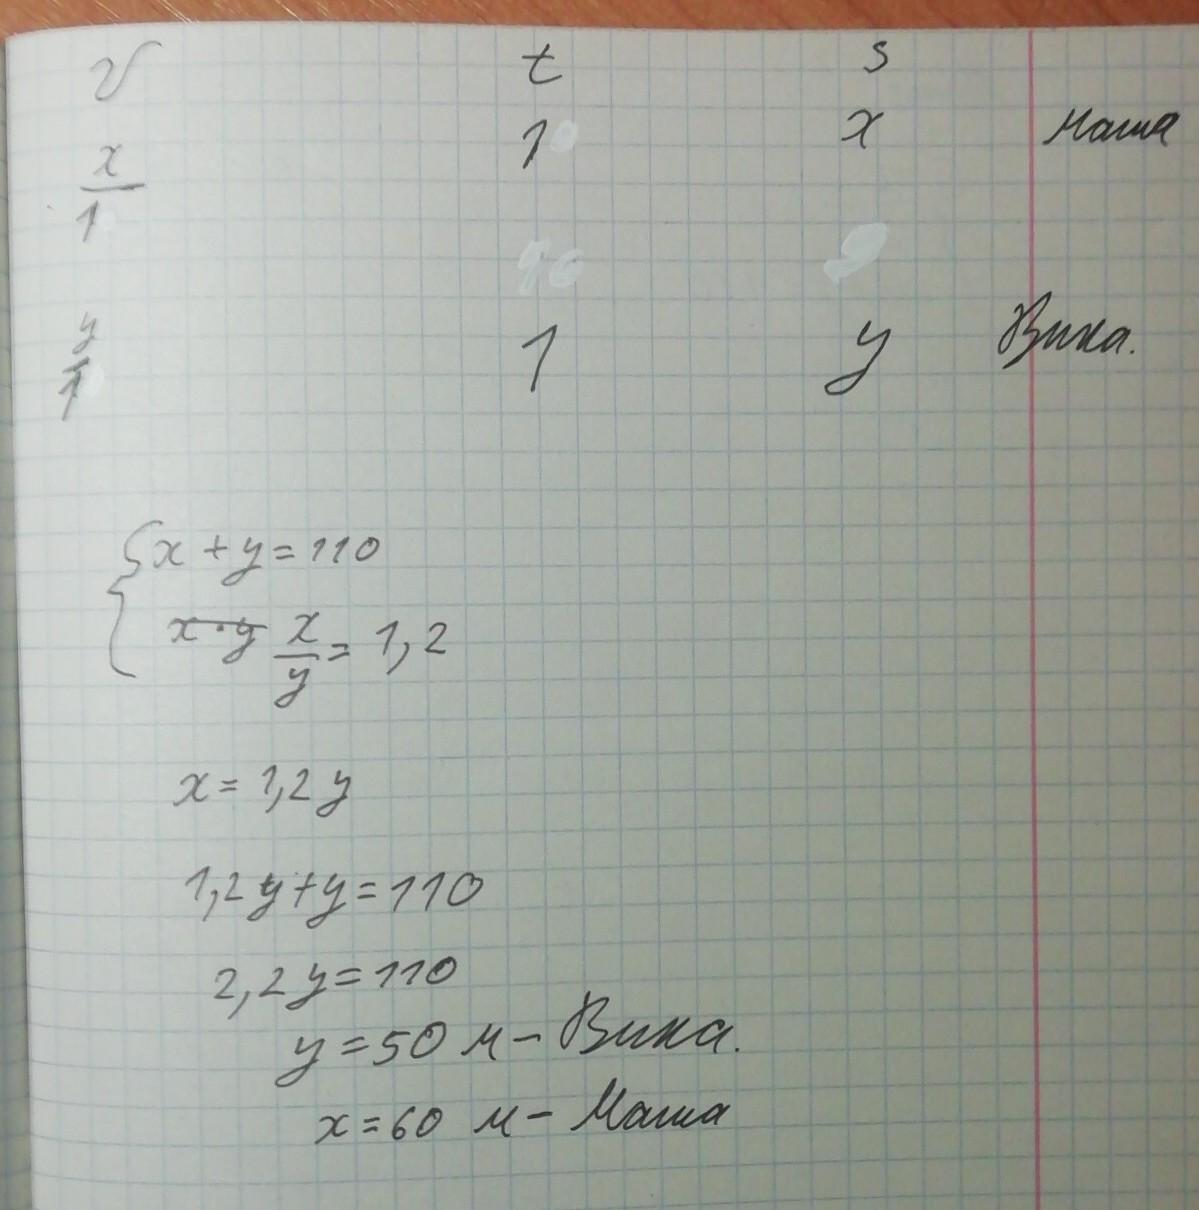 v t s
x/1 1 x Маша
y/1 1 y Вика.
{x + y = 110
x · y x/y = 1,2
x = 1,2 y
1,2 y + y = 110
2,2 y = 110
y = 50 м - Вика.
x = 60 м - Маша